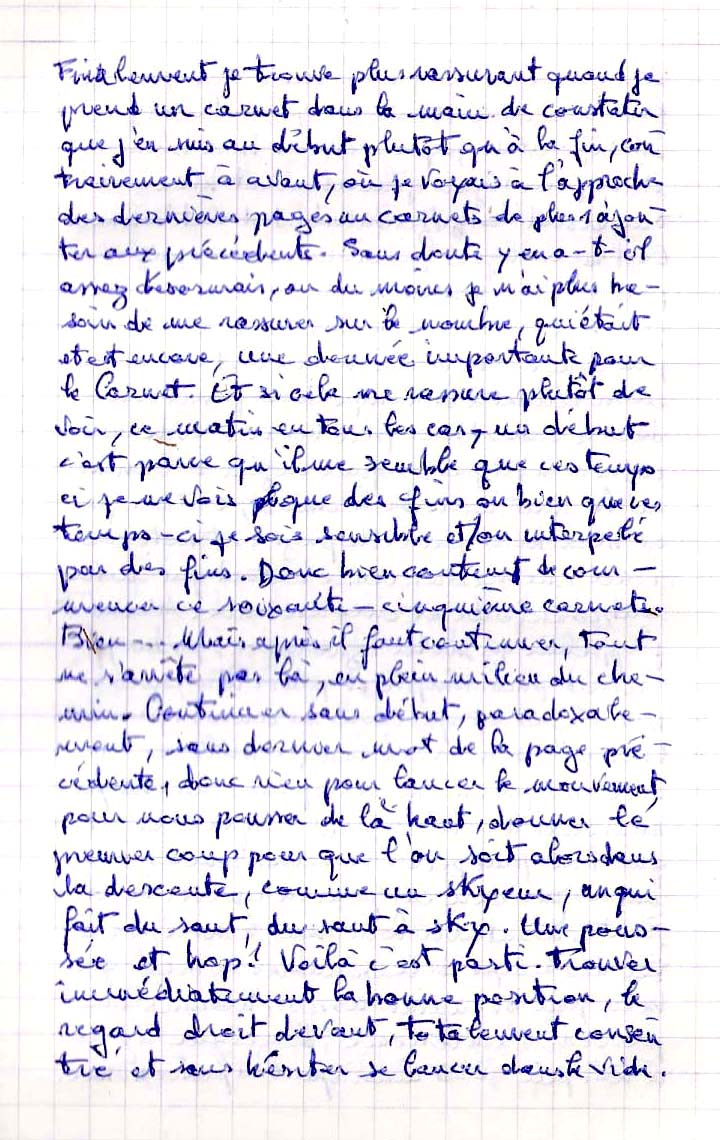 Finalement je trouve plus rassurant quand je
prend un carnet dans la main de constater
que j'en suis au début plutôt qu'à la fin, con
trairement à avant, où je voyais à l'approche
des dernières pages un carnets de plus à ajou-
ter aux précédents. Sans doute y en a-t-il
assez désormais, ou du moins je n'ai plus be-
soin de me rassurer sur le nombre, qui était
et est encore, une donnée importante pour
le Carnet. Et si cela me rassure plutôt de
voir, ce matin en tous les cas, un début
c'est parce qu'il me semble que ces temps
ci je ne vois que des fins ou bien que ces
temps-ci je sois sensible et/ou interpelé
par des fins. Donc bien content de com-
mencer ce soixante-cinquième carnet.
Bien... Mais après il faut continuer, tout
ne s'arrête pas là, en plein milieu du che-
min. Continuer sans début, paradoxale-
ment, sans dernier mot de la page pré-
cédente, donc rien pour lancer le mouvement,
pour nous pousser de là haut, donner le
premier coup pour que l'on soit alors dans
la descente, comme un skyeur, un qui
fait du saut, du saut à sky. Une pous-
sée et hop! Voilà c'est parti. Trouver
immédiatement la bonne position, le
regard droit devant, totalement consen
tré et sans hésiter se lancer dans le vide.